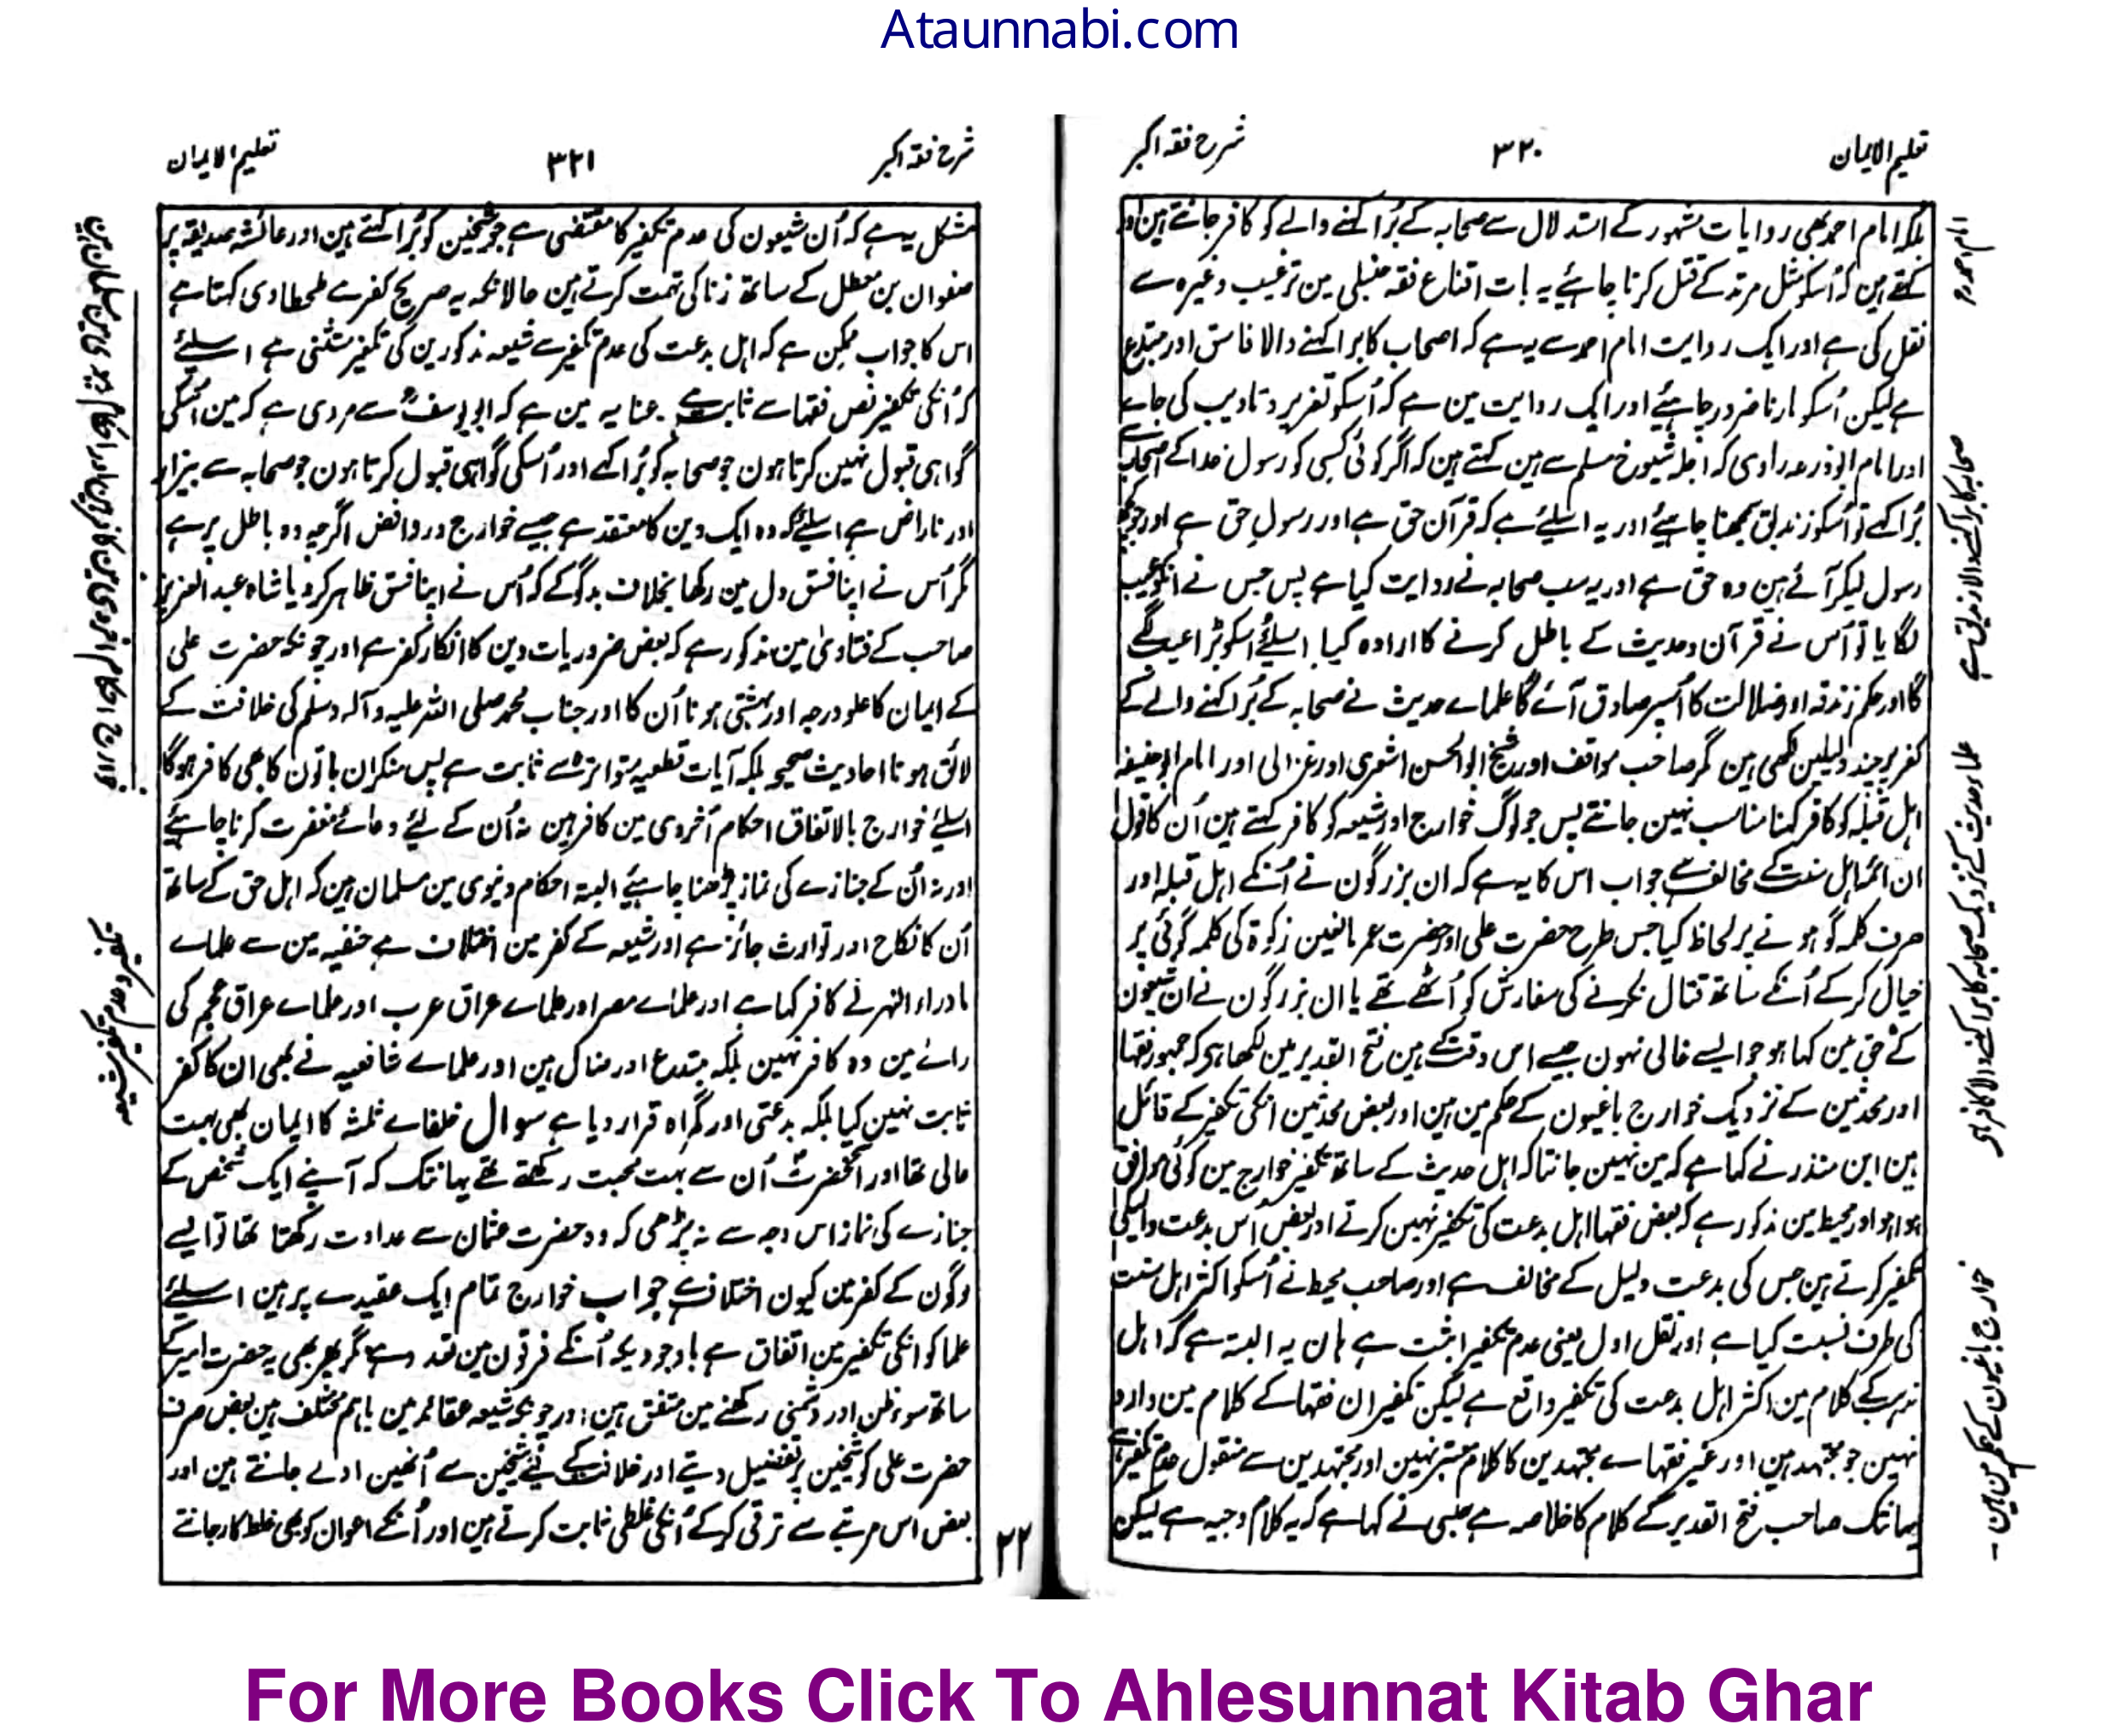 Ataunnabi.com
تعلیم الایمان
۳۲۰
شرح فقہ اکبر
بلکہ امام احمد بھی روایات مشہور کے استدلال سے صحابہ کے بُرا کہنے والے کو کافر جانتے ہین اور
کہتے ہین کہ اُسکو مثل مرتد کے قتل کرنا چاہئے یہ بات اقناع فقہ حنبلی مین ترغیب وغیرہ سے
نقل کی ہے اور ایک روایت امام احمد سے یہ ہے کہ اصحاب کا برا کہنے والا فاسق اور مبتدع
ہے لیکن اُسکو مارنا ضرور چاہئے اور ایک روایت مین ہے کہ اُسکو تعزیر و تادیب کی جاے
اور امام ابوذرعہ رادی کہ اجلہ شیوخ مسلم سے ہین کہتے ہین کہ اگر کوئی کسی کو رسول خدا کے اصحاب سے
بُرا کہے تو اُسکو زندیق سمجھنا چاہئے اور یہ اسلئے ہے کہ قرآن حق ہے اور رسول حق ہے اور جو کچھ
رسول لیکر آئے ہین وہ حق ہے اور یہ سب صحابہ نے روایت کیا ہے پس جس نے انکو عیب
لگایا تو اُس نے قرآن و حدیث کے باطل کرنے کا ارادہ کیا اسلئے اسکو بڑا عیب لگے
گا اور حکم زندقہ اور ضلالت کا اُسپر صادق آئے گا علماے حدیث نے صحابہ کے بُرا کہنے والے کے
کفر پر چند دلیلین لکھی ہین مگر صاحب مواقف اور شیخ ابوالحسن اشعری اور غزالی اور امام ابوحنیفہ
اہل قبلہ کو کافر کہنا مناسب نہین جانتے پس جو لوگ خوارج اور شیعہ کو کافر کہتے ہین اُن کا قول
ان ائمہ اہل سنت کے مخالف ہے جواب اس کا یہ ہے کہ ان بزرگون نے اُنکے اہل قبلہ اور
صرف کلمہ گو ہونے پر لحاظ کیا جس طرح حضرت علی اور حضرت عمر مانعین زکوۃ کی کلمہ گوئی پر
خیال کرکے اُنکے ساتھ قتال نکرنے کی سفارش کو اُٹھے تھے یا ان بزرگون نے ان شیعون
کے حق مین کہا ہو جو ایسے غالی نہون جیسے اس وقت کے ہین فتح القدیر مین لکھا ہی کہ جمہور فقہا
اور محدثین کے نزدیک خوارج باغیون کے حکم مین ہین اور بعض محدثین انکی تکفیر کے قائل
ہین ابن منذر نے کہا ہے کہ مین نہین جانتا کہ اہل حدیث کے ساتھ تکفیر خوارج مین کوئی موافق
ہوا ہو اور محیط مین مذکور ہے کہ بعض فقہا اہل بدعت کی تکفیر نہین کرتے اور بعض اس بدعت والیکی
تکفیر کرتے ہین جس کی بدعت دلیل کے مخالف ہے اور صاحب محیط نے اُسکو اکثر اہل سنت
کی طرف نسبت کیا ہے اور نقل اول یعنی عدم تکفیر اثبت ہے ہان یہ البتہ ہے کہ اہل
مذہب کے کلام مین اکثر اہل بدعت کی تکفیر واقع ہے لیکن تکفیر ان فقہا کے کلام مین وارد
نہین جو مجتہد ہین اور غیر فقہاے مجتہدین کا کلام معتبر نہین اور مجتہدین سے منقول عدم تکفیر ہے
یہانتک صاحب فتح القدیر کے کلام کا خلاصہ ہے حلبی نے کہا ہے کہ یہ کلام وجیہ ہے لیکن
امام احمد رح
صحابہ کا برا کہنے والا زندیق ہے
علماء حدیث کے نزدیک صحابہ کا برا کہنے والا کافر ہی
خوارج باغیون کے حکم مین ہین -
شرح فقہ اکبر
۳۲۱
تعلیم الایمان
مشکل یہ ہے کہ اُن شیعون کی عدم تکفیر کا مقتضی ہے جو شیخین کو بُرا کہتے ہین اور عائشہ صدیقہ پر
صفوان بن معطل کے ساتھ زنا کی تہمت کرتے ہین حالانکہ یہ صریح کفر ہے طحطاوی کہتا ہے
اس کا جواب ممکن ہے کہ اہل بدعت کی عدم تکفیر سے شیعہ مذکورین کی تکفیر مستثنی ہے اسلئے
کہ اُنکی تکفیر نص فقہا سے ثابت ہے ۔ عنایہ مین ہے کہ ابویوسف سے مروی ہے کہ مین اُسکی
گواہی قبول نہین کرتا ہون جو صحابہ کو بُرا کہے اور اُسکی گواہی قبول کرتا ہون جو صحابہ سے بیزار
اور ناراض ہے اسلئے کہ وہ ایک دین کا معتقد ہے جیسے خوارج و روافض اگرچہ وہ باطل پر ہے
مگر اُس نے اپنا فسق دل مین رکھا بخلاف بدگو کے کہ اُس نے اپنا فسق ظاہر کر دیا شاہ عبد العزیز
صاحب کے فتاوی مین مذکور ہے کہ بعض ضروریات دین کا انکار کفر ہے اور چونکہ حضرت علی
کے ایمان کا علو درجہ اور بہشتی ہونا اُن کا اور جناب محمد صلی اللہ علیہ وآلہ وسلم کی خلافت کے
لائق ہونا احادیث صحیح بلکہ آیات قطعیہ متواترہ سے ثابت ہے پس منکر ان باتون کا بھی کافر ہوگا
اسلئے خوارج بالاتفاق احکام اُخروی مین کافر ہین نہ اُن کے لئے دعائے مغفرت کرنا چاہئے
اور نہ اُن کے جنازے کی نماز پڑھنا چاہئے البتہ احکام دنیوی مین مسلمان ہین کہ اہل حق کے ساتھ
اُن کا نکاح اور توارث جائز ہے اور شیعہ کے کفر مین اختلاف ہے حنفیہ مین سے علماے
ماوراء النہر نے کافر کہا ہے اور علماے مصر اور علماے عراق عرب اور علماے عراق عجم کی
رائے مین وہ کافر نہین بلکہ مبتدع اور ضال ہین اور علماے شافعیہ نے بھی ان کا کفر
ثابت نہین کیا بلکہ بدعتی اور گمراہ قرار دیا ہے سوال خلفاے ثلثہ کا ایمان بھی بہت
عالی تھا اور آنحضرت اُن سے بہت محبت رکھتے تھے یہانتک کہ آپنے ایک شخص کے
جنازے کی نماز اس وجہ سے نہ پڑھی کہ وہ حضرت عثمان سے عداوت رکھتا تھا تو ایسے
لوگون کے کفر مین کیون اختلاف ہے جواب خوارج تمام ایک عقیدے پر ہین اسلئے
علما کو انکی تکفیر مین اتفاق ہے باوجودیکہ اُنکے فرقون مین تعدد ہے مگر پھر بھی یہ حضرت امیر کے
ساتھ سوء ظن اور دشمنی رکھنے مین متفق ہین اور چونکہ شیعہ عقائد مین باہم مختلف ہین بعض صرف
حضرت علی کو شیخین پر تفضیل دیتے اور خلافت کے لئے شیخین سے اُنھین اولے جانتے ہین اور
بعض اس مرتبے سے ترقی کرکے اُنکی غلطی ثابت کرتے ہین اور اُنکے اعوان کو بھی غلط کار جانتے
خوارج احکام اخروی مین کافر ہین اور احکام دنیوی مین مسلمان ہین
تکفیر و عدم تکفیر شیعہ
۲۲
For More Books Click To Ahlesunnat Kitab Ghar